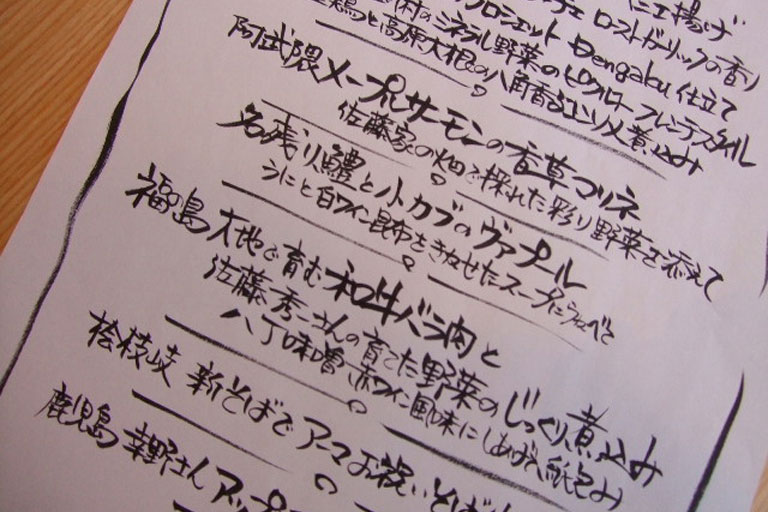 ロースト ガーリックの香り
クロシェット Dengaku 仕立て
村のミネラル野菜のピクルス フレンチスタイル
鶏と高原大根の八角香るエソリ煮込み
阿武隈メープルサーモンの香草マリネ
佐藤家の畑で採れた彩り野菜を添えて
名残り鱧と小カブのヴァプール
うにと白ワイン昆布をきかせたスープにうかべて
福島 大地で育む和牛バラ肉と
佐藤秀一さんの育てた野菜のじっくり煮込み
八丁味噌 赤ワイン風味にしあげ 紙包み
桧枝岐 新そばで アーマお祝いそば
鹿児島 幸野さん アップ